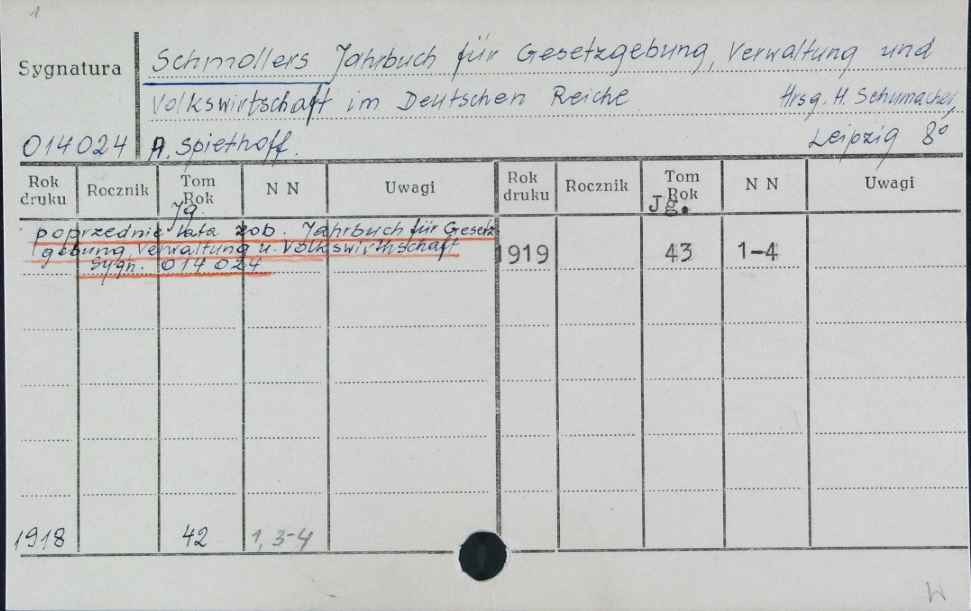 1
Sygnatura
Schmollers Jahrbuch für Gesetzgebung, Verwaltung und
Volkswirtschaft im Deutschen Reiche Hrsg. H. Schumacher,
014024 A. Spiethoff. Leipzig 8º
Rok druku Rocznik Tom Rok Jg. N N Uwagi Rok druku Rocznik Tom Rok Jg. N N Uwagi
poprzednie lata zob. Jahrbuch für Gesetz
gebung, Verwaltung u. Volkswirthschaft
Sygn. 014 024
1919 43 1-4
1918 42 1, 3-4
W